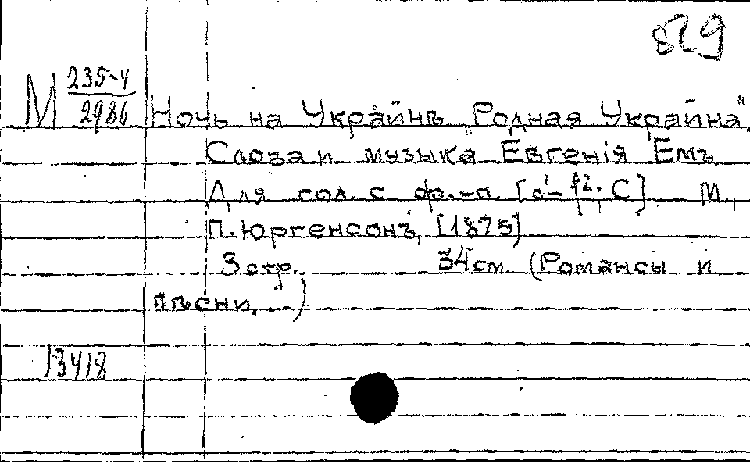 829
М 235-4/2986
Ночь на Украйнѣ "Родная Украйна".
Слова и музыка Евгенія Емъ
Для гол. с фо.-п. [d¹-f². С] М.,
П. Юргенсонъ, [1875]
3 стр. 34 см. (Романсы и
пѣсни. )
13418